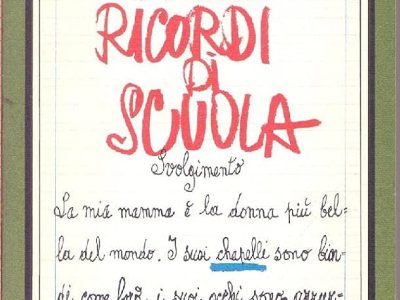 RICORDI
DI
SCUOLA
Svolgimento
La mia mamma è la donna più bel=
la del mondo. I suoi chapelli sono bion=
di come l'oro, i suoi occhi sono azzur=